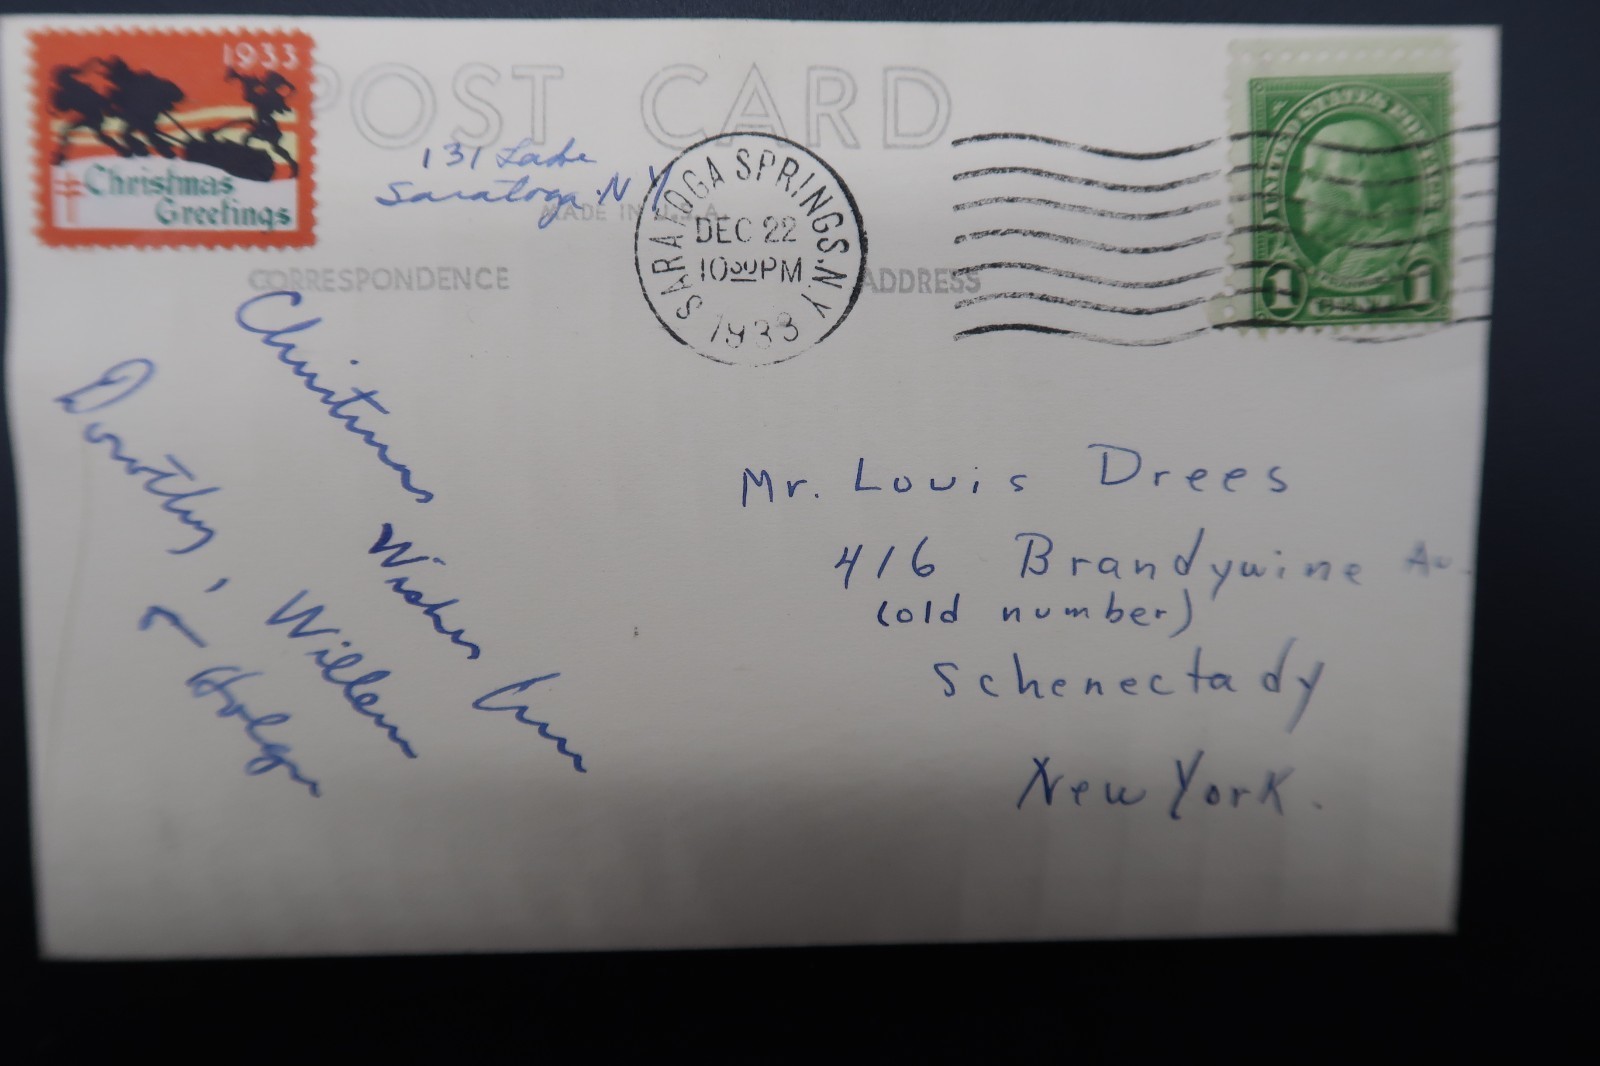 1933
Christmas
Greetings
POST CARD
131 Lake
Saratoga N Y
MADE IN U.S.A.
SARATOGA SPRINGS. N.Y.
DEC 22
10 30 PM
1933
UNITED STATES POSTAGE
FRANKLIN
1 CENT 1
CORRESPONDENCE
ADDRESS
Christmas Wishes from
Dorothy, Willem
+ Holger
Mr. Louis Drees
416 Brandywine Av.
(old number)
Schenectady
New York.